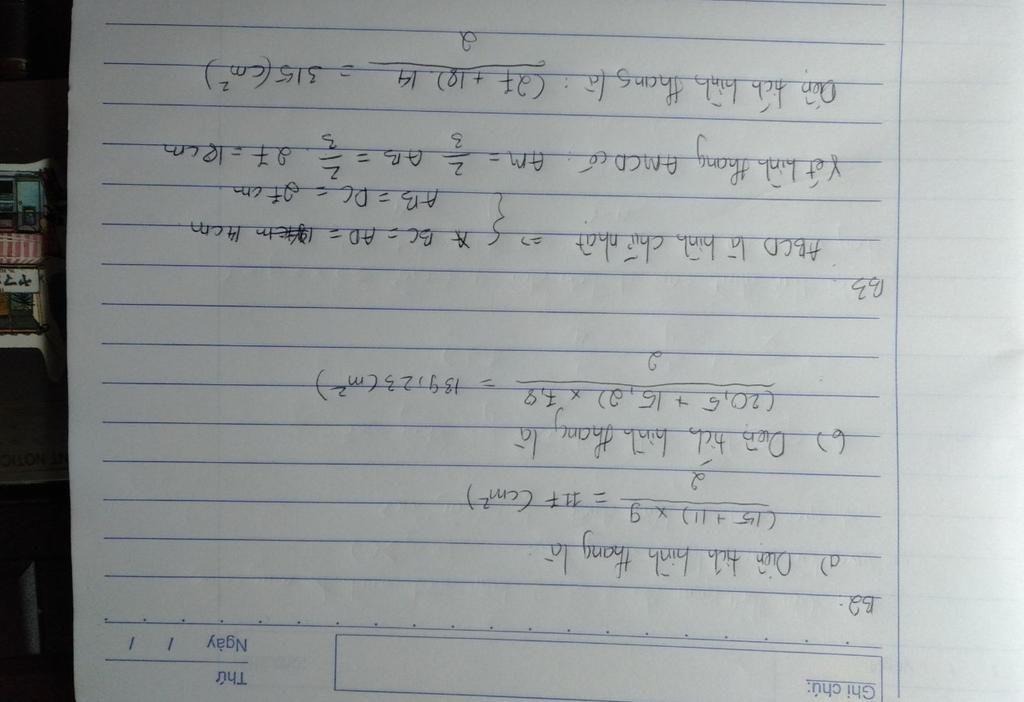 Ghi chú:
Thứ
Ngày / /
B2.
a) Diện tích hình thang là
(15 + 11) x 9
= 117 (cm²)
2
b) Diện tích hình thang là
(20,5 + 15,2) x 7,8
= 139,23 (cm²)
2
B3
ABCD là hình chữ nhật => { BC = AD = 14cm
AB = DC = 27cm
Xét hình thang AMCD có: AM = 2/3 AB = 2/3 . 27 = 18cm
Diện tích hình thang là: (27 + 18). 14 = 315 (cm²)
2
NT NOTIC